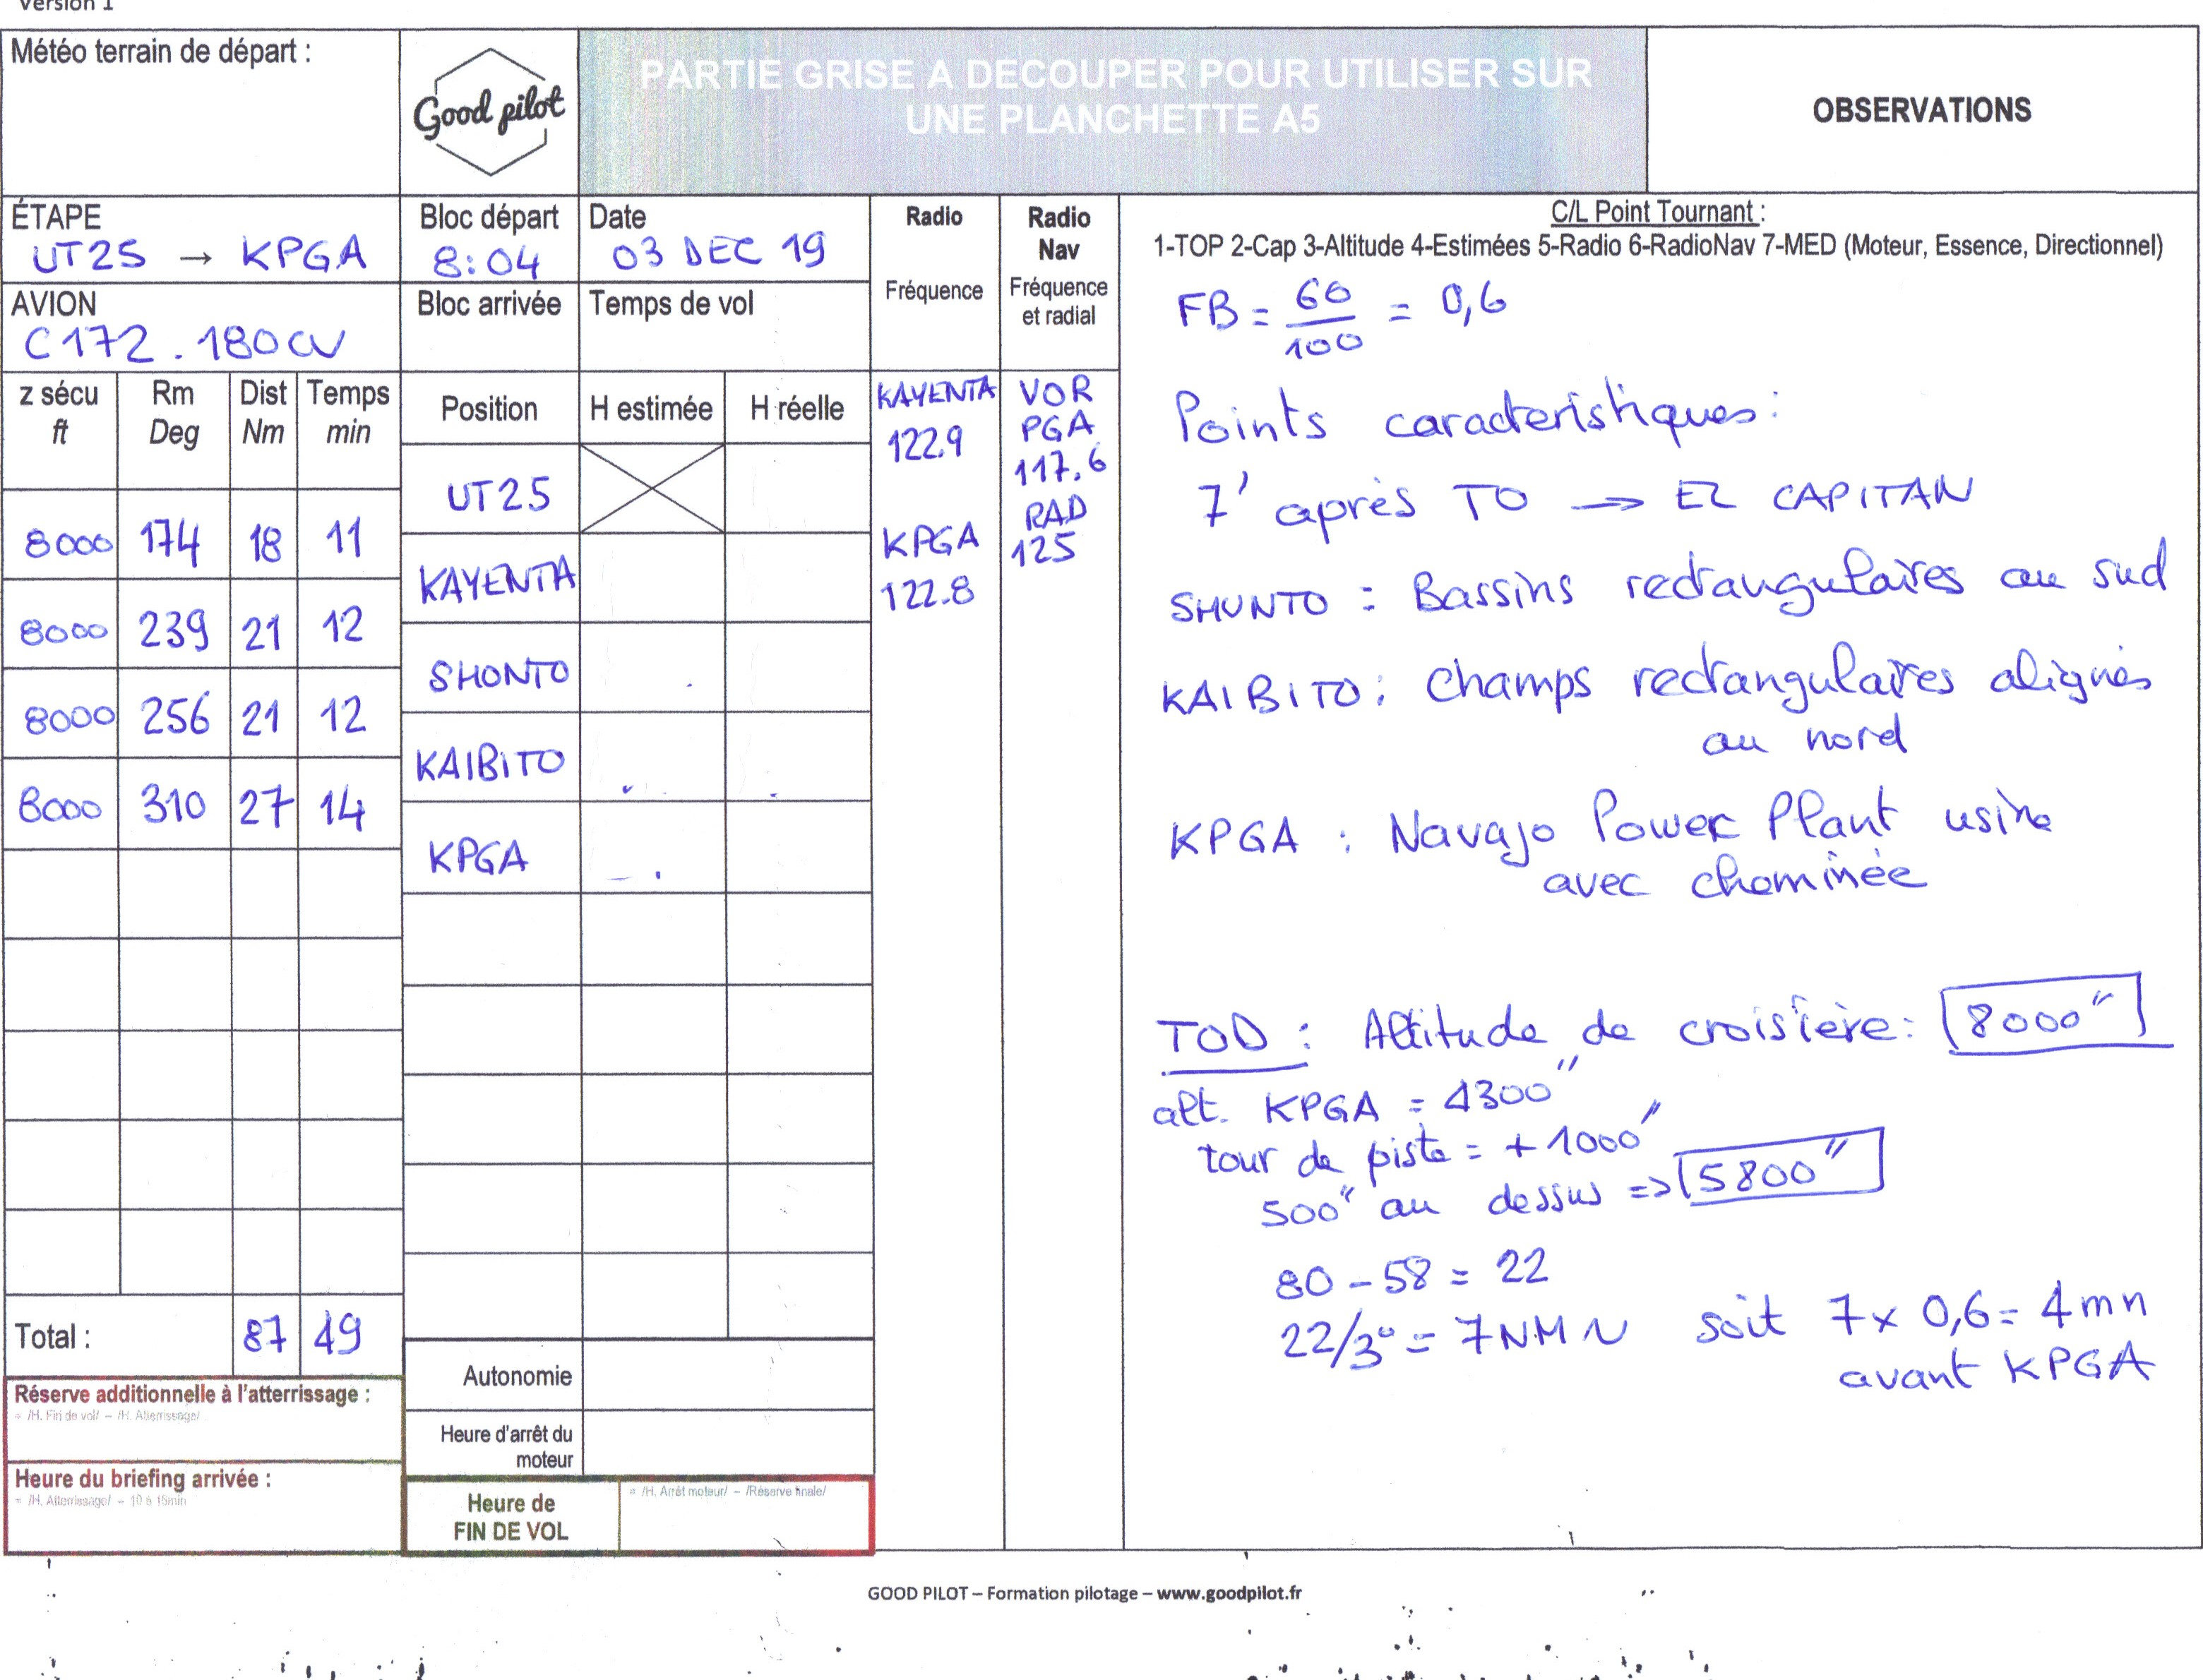 Version 1
Météo terrain de départ :
Good pilot
PARTIE GRISE A DECOUPER POUR UTILISER SUR
UNE PLANCHETTE A5
OBSERVATIONS
ÉTAPE
UT25 → KPGA
Bloc départ
8:04
Date
03 DEC 19
AVION
C172.180CV
Bloc arrivée
Temps de vol
Radio
Fréquence
Radio
Nav
Fréquence
et radial
C/L Point Tournant :
1-TOP 2-Cap 3-Altitude 4-Estimées 5-Radio 6-RadioNav 7-MED (Moteur, Essence, Directionnel)
z sécu
ft
Rm
Deg
Dist
Nm
Temps
min
Position
H estimée
H réelle
UT25
8000 174 18 11
KAYENTA
8000 239 21 12
SHONTO
8000 256 21 12
KAIBITO
8000 310 27 14
KPGA
Total : 87 49
Autonomie
Heure d'arrêt du
moteur
Heure de
FIN DE VOL
= /H. Arrêt moteur/ – /Réserve finale/
Réserve additionnelle à l'atterrissage :
= /H. Fin de vol/ – /H. Atterrissage/
Heure du briefing arrivée :
= /H. Atterrissage/ – 10 à 15min
KAYENTA
122.9
KPGA
122.8
VOR
PGA
117.6
RAD
125
FB = 60/100 = 0,6
Points caracteristiques :
7' après TO → EL CAPITAN
SHUNTO : Bassins rectangulaires au sud
KAIBITO : champs rectangulaires alignés
au nord
KPGA : Navajo Power Plant usine
avec cheminée
TOD : Altitude de croisière : 8000"
alt. KPGA = 4300"
tour de piste = + 1000'
500" au dessus => 5800"
80 - 58 = 22
22/3° = 7NM N soit 7 x 0,6 = 4mn
avant KPGA
GOOD PILOT – Formation pilotage – www.goodpilot.fr